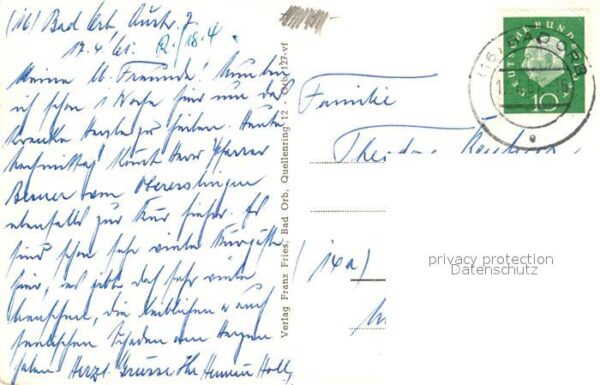 (16) Bad Orb Austr. 7
17.4.61. R./18.4.
Meine lb. Freunde! Nun bin
ich schon 1 Woche hier um das
kranke Herzle zu heilen. Heute
Nachmittag kommt Herr Pfarrer
Berner von Oberesslingen
ebenfalls zur Kur hieher. Es
sind schon sehr viele Kurgäste
hier, es gibt doch sehr viele
Menschen, die leiblichen u. auch
seelischen Schaden am Herzen
haben. Herzl. Grüsse Ihr Hermann Holl,
Verlag Franz Fries, Bad Orb, Quellenring 12 - Orb/127.vf
DEUTSCHE BUNDESPOST
10
(16) BAD ORB
Familie
Theodor
(14a)
privacy protection
Datenschutz